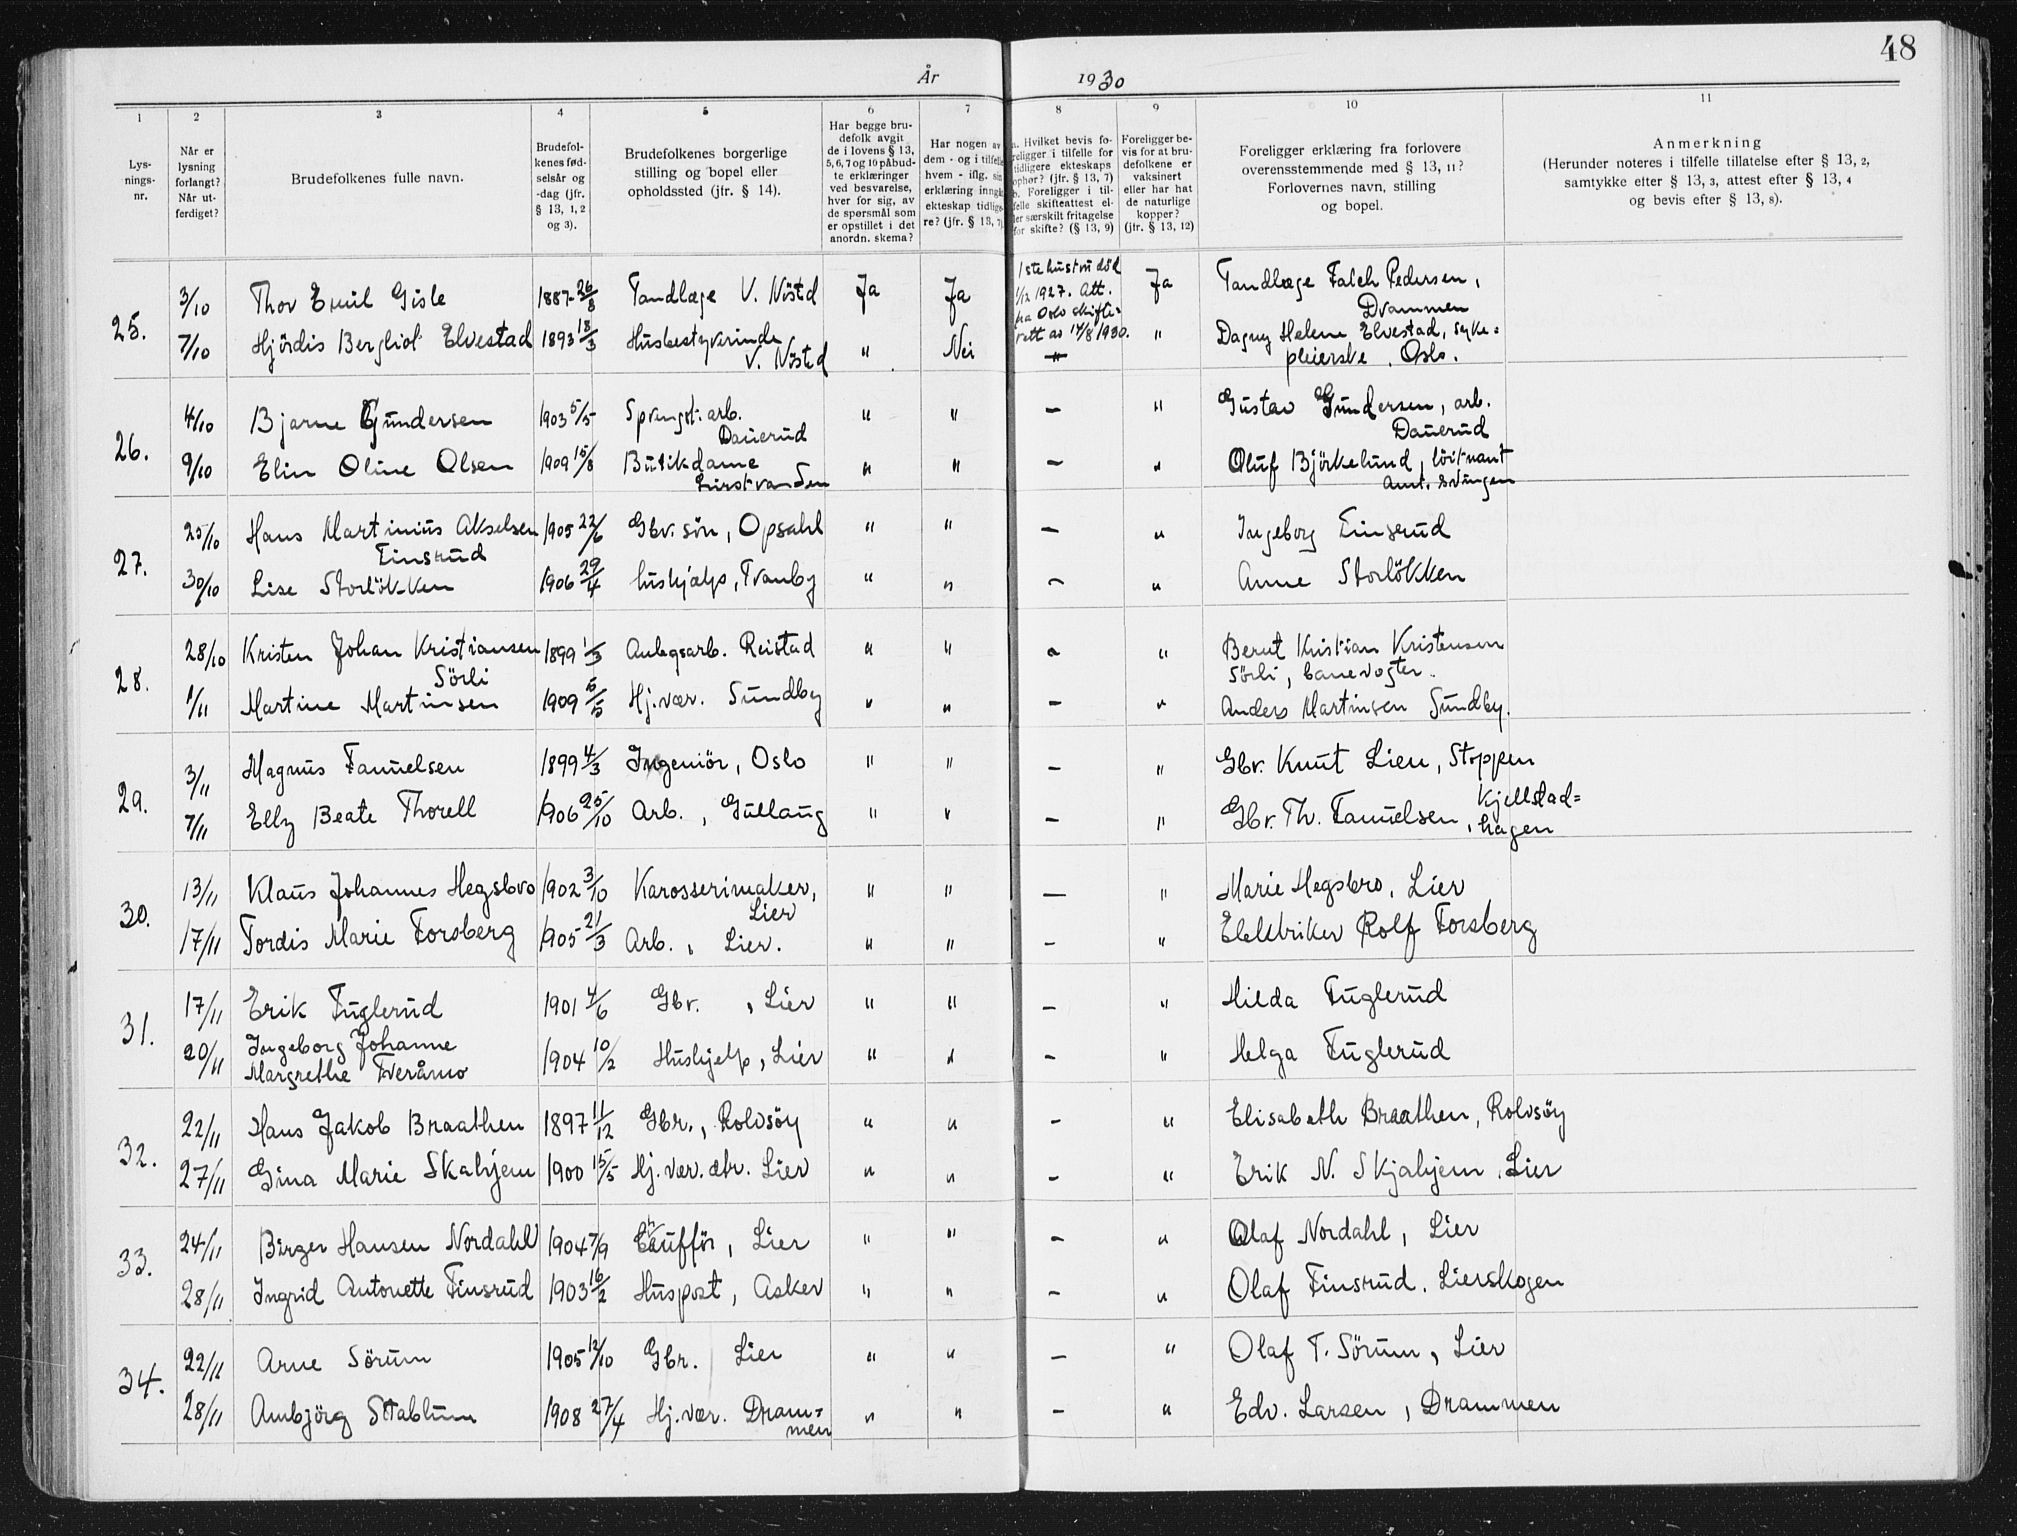 48
År 1930
1 2 3 4 5 6 7 8 9 10 11
Lys-
nings-
nr.
Når er
lysning
forlangt?
Når ut-
ferdiget?
Brudefolkenes fulle navn.
Brudefol-
kenes fød-
selsår og
-dag (jfr.
§ 13, 1, 2
og 3).
Brudefolkenes borgerlige
stilling og bopel eller
opholdssted (jfr. § 14).
Har begge bru-
defolk avgit
de i lovens § 13,
5, 6, 7 og 10 påbud-
te erklæringer
ved besvarelse,
hver for sig, av
de spørsmål som
er opstillet i det
anordn. skema?
Har nogen av
dem - og i tilfelle
hvem - iflg. sin
erklæring inngå
ekteskap tidlig
re? (jfr. § 13, 7)
a. Hvilket bevis fo-
religger i tilfelle for
tidligere ekteskaps
ophør? (jfr. § 13, 7)
b. Foreligger i til-
felle skifteattest el-
ler særskilt fritagelse
for skifte? (§ 13, 9)
Foreligger be-
vis for at bru-
defolkene er
vaksinert
eller har hat
de naturlige
kopper?
(jfr. § 13, 12)
Foreligger erklæring fra forlovere
overensstemmende med § 13, 11?
Forlovernes navn, stilling
og bopel.
Anmerkning
(Herunder noteres i tilfelle tillatelse efter § 13, 2,
samtykke efter § 13, 3, attest efter § 13, 4
og bevis efter § 13, 8).
25.
3/10 Thor Emil Gisle 1887-26/8 Tandlæge V. Nøstd Ja Ja 1ste hustru død Ja Tandlæge Falch Pedersen,
1/12 1927. Att. Drammen
fra Oslo skifte-
7/10 Hjördis Bergliot Elvestad 1893 18/3 Husbestyrerinde " Nei rett av 14/8 1930. " Dagny Helene Elvestad, syke=
V. Nøsted " pleierske, Oslo.
26.
4/10 Bjarne Gundersen 1903 5/5 Sprengst. arb. " " — " Gustav Gundersen, arb.
Dauerud Dauerud
9/10 Elin Oline Olsen 1909 15/8 Butikdame " " — " Oluf Björkelund, löitnant
27.
25/10 Hans Martinius Akselsen 1905 22/6 Gbr. sön, Opsahl " " — " Ingeborg Finsrud
Finsrud
30/10 Lise Storlökken 1906 29/4 hushjælp, Tranby " " — " Anne Storlökken
28.
28/10 Kristen Johan Kristiansen 1899 1/3 Anlegsarb. Reistad " " — " Bernt Kristian Kristensen
Sörli Sörli, banevogter.
1/11 Martine Martinsen 1909 5/5 Hj.vær. Sundby " " — " Anders Martinsen Sundby.
29.
3/11 Magnus Fanuelsen 1899 4/3 Ingeniör, Oslo " " — " Gbr. Knut Lien, Stoppen
7/11 Elly Beate Thorell 1906 25/10 Arb., Gullaug " " — " Gbr. Th. Fanuelsen, Kjellstad=
hagen
30.
13/11 Klaus Johannes Hegsbro 1902 3/10 Karosserimaker, " " — " Marie Hegsbro, Lier
Lier
17/11 Tordis Marie Forsberg 1905 21/3 Arb., Lier. " " — " Elektriker Rolf Forsberg
31.
17/11 Erik Fuglerud 1901 4/6 Gbr., Lier " " — " Hilda Fuglerud
20/11 Ingeborg Johanne
Margrethe Tveråmo 1904 10/2 Hushjelp, Lier " " — " Helga Fuglerud
32.
22/11 Hans Jakob Braathen 1897 11/12 Gbr., Rolvsöy " " — " Elisabeth Braathen, Rolvsöy
27/11 Gina Marie Skahjem 1900 15/5 Hj. vær. dtr. Lier " " — " Erik N. Skjahjem, Lier
33.
24/11 Birger Hansen Nordahl 1904 7/9 Chaufför, Lier " " — " Olaf Nordahl, Lier
28/11 Ingrid Antonette Finsrud 1903 16/2 Huspost, Asker " " — " Olaf Finsrud, Lierskogen
34.
22/11 Arne Sörum 1905 12/10 Gbr. Lier " " — " Olaf T. Sörum, Lier
28/11 Ambjörg Stablum 1908 27/4 Hj.vær. Dram= " " — " Edv. Larsen, Drammen
men